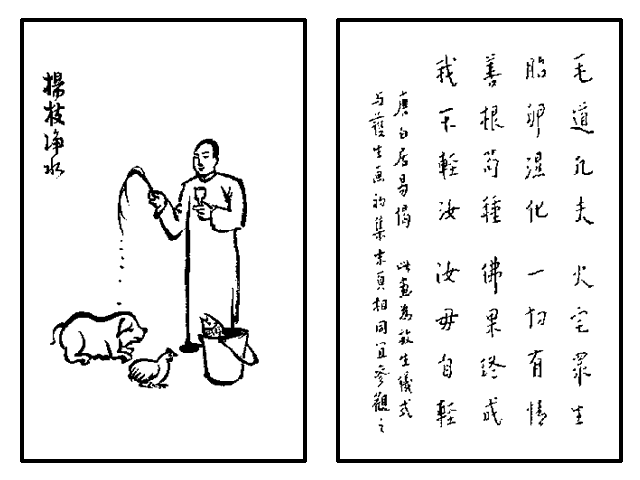 楊枝净水
毛道凡夫 火宅眾生
胎卵濕化 一切有情
善根苟種 佛果終成
我不輕汝 汝毋自輕
唐白居易偈 此畫為放生儀式
与護生画初集末頁相同宜參觀之